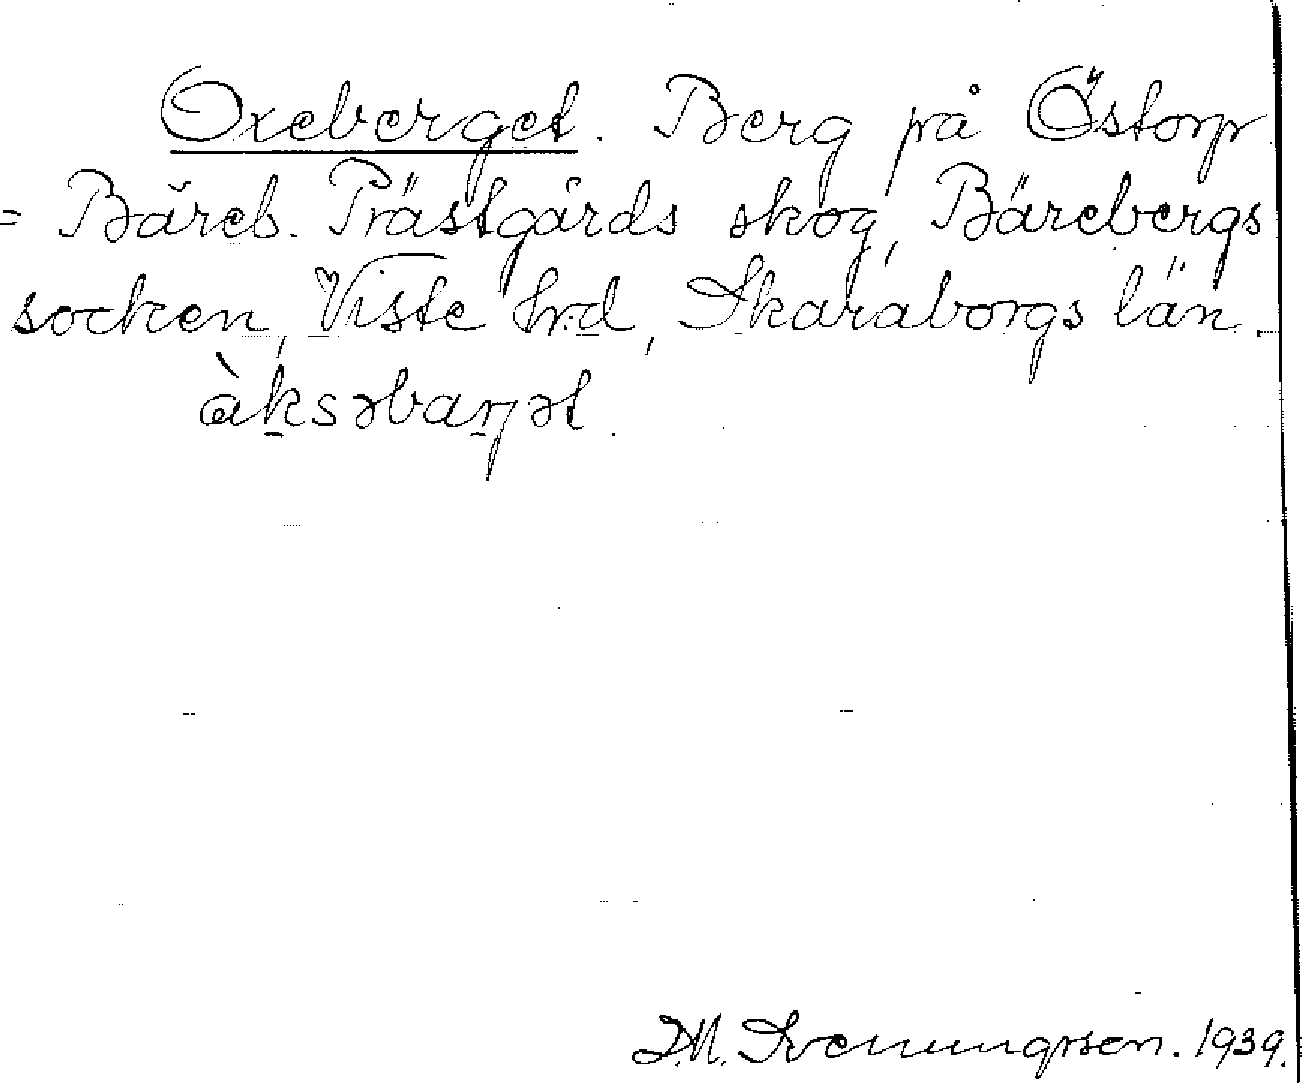 Oxeberget. Berg på Östorp
= Bäreb. Prästgårds skog, Bärebergs
socken, Viste hrd, Skaraborgs län.
àksəbaŋət.
D.M. Svenungsson. 1939.